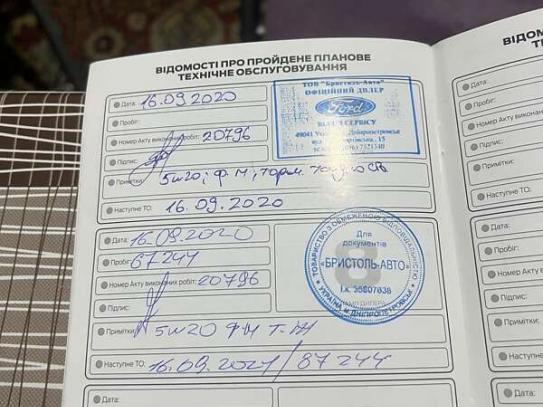 ВІДОМОСТІ ПРО ПРОЙДЕНЕ ПЛАНОВЕ
ТЕХНІЧНЕ ОБСЛУГОВУВАННЯ
Дата: 16.09.2020
Пробіг:
Номер Акту виконаних робіт: 20796
Підпис:
Примітки: 5w20; ф. м.; торм.
Наступне ТО: 16.09.2020
ТОВ "Бристоль-Авто"
ОФІЦІЙНИЙ ДИЛЕР
Ford
ВІДДІЛ СЕРВІСУ
Дата: 16.09.2020
Пробіг: 67244
Номер Акту виконаних робіт: 20796
Підпис:
Примітки: 5w20 ФМ Т-Ж
Наступне ТО: 16.09.2021 / 87244
ТОВАРИСТВО З ОБМЕЖЕНОЮ ВІДПОВІДАЛЬНІСТЮ
Для
документів
«БРИСТОЛЬ-АВТО»
УКРАЇНА М. ДНІПРОПЕТРОВСЬК
Дата:
Дата:
Пробіг:
Номер Акту
Підпис:
Примітки:
Наступне ТО:
Дата:
Пробіг:
Номер Акту
Підпис:
Примітки:
Наступне ТО:
Дата: